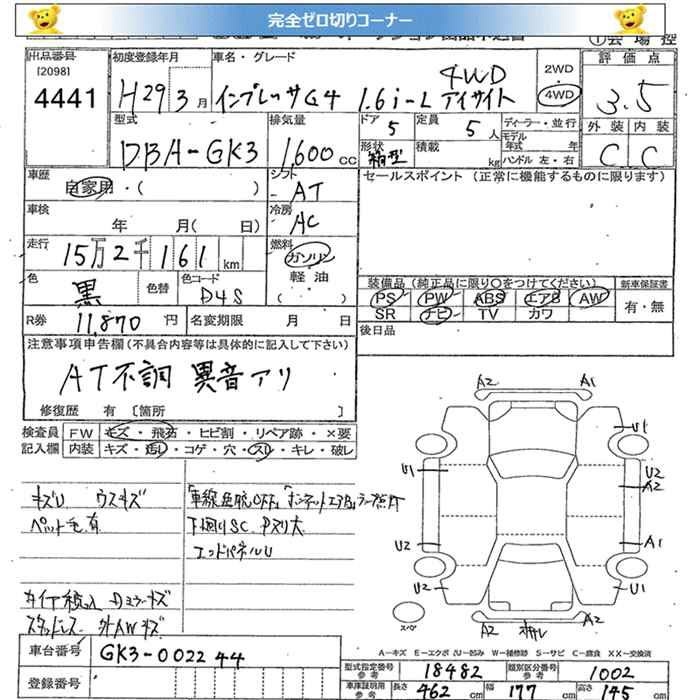 完全ゼロ切りコーナー
①会場控
出品番号
[2098]
4441
初度登録年月
H29 3月
車名・グレード
インプレッサG4 1.6i-L アイサイト 4WD
2WD
4WD
評価点
3.5
外装 内装
C C
型式
DBA-GK3
排気量
1,600cc
ドア 5
形状 箱型
定員 5人
積載 kg
ディーラー・並行
モデル年式 年
ハンドル 左・右
車歴
自家用・( )
シフト
AT
セールスポイント (正常に機能するものに限ります)
車検
年 月( 日)
冷房
AC
走行
15万2千161km
燃料
ガソリン
軽油
( )
色
黒
色替
色コード
D4S
装備品(純正品に限り○をつけてください) 新車保証書
PS PW ABS エアB AW
SR ナビ TV カワ
有・無
R券 11,870円
名変期限 月 日
後日品
注意事項申告欄(不具合内容等は具体的に記入して下さい)
AT不調 異音アリ
修復歴 有 [箇所 ]
検査員 FW キズ・飛石・ヒビ割・リペア跡・×要
記入欄 内装 キズ・汚レ・コゲ・穴・スレ・キレ・破レ
キズU ウスキズ
ペット毛有
下廻りSC Pヌリ大
エンドパネルU
タイヤ積込 Dミラーキズ
スタッドレス 外AWキズ
A2 A1
U1
U1 U2
A2
U2 A1
U2 U2
A2 A2
スペア
A-キズ E-エクボ U-凹み W-補修跡 S-サビ C-腐食 XX-交換済
車台番号 GK3-002244
登録番号
型式指定番号 参考 18482
類別区分番号 参考 1002
車庫証明用 参考 長さ 462cm 幅 177cm 高さ 145cm